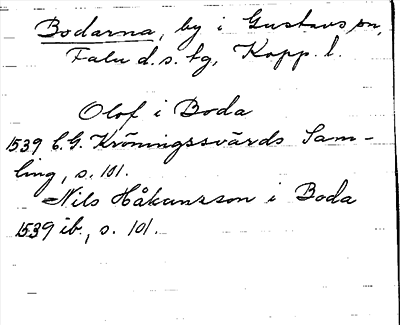 Bodarna, by i Gustavs sn,
Falu d.s. tg, Kopp. l.
Olof i Boda
1539 C.G. Kröningssvärds Sam-
ling, s. 101.
Nils Håkansson i Boda
1539 ib., s. 101.